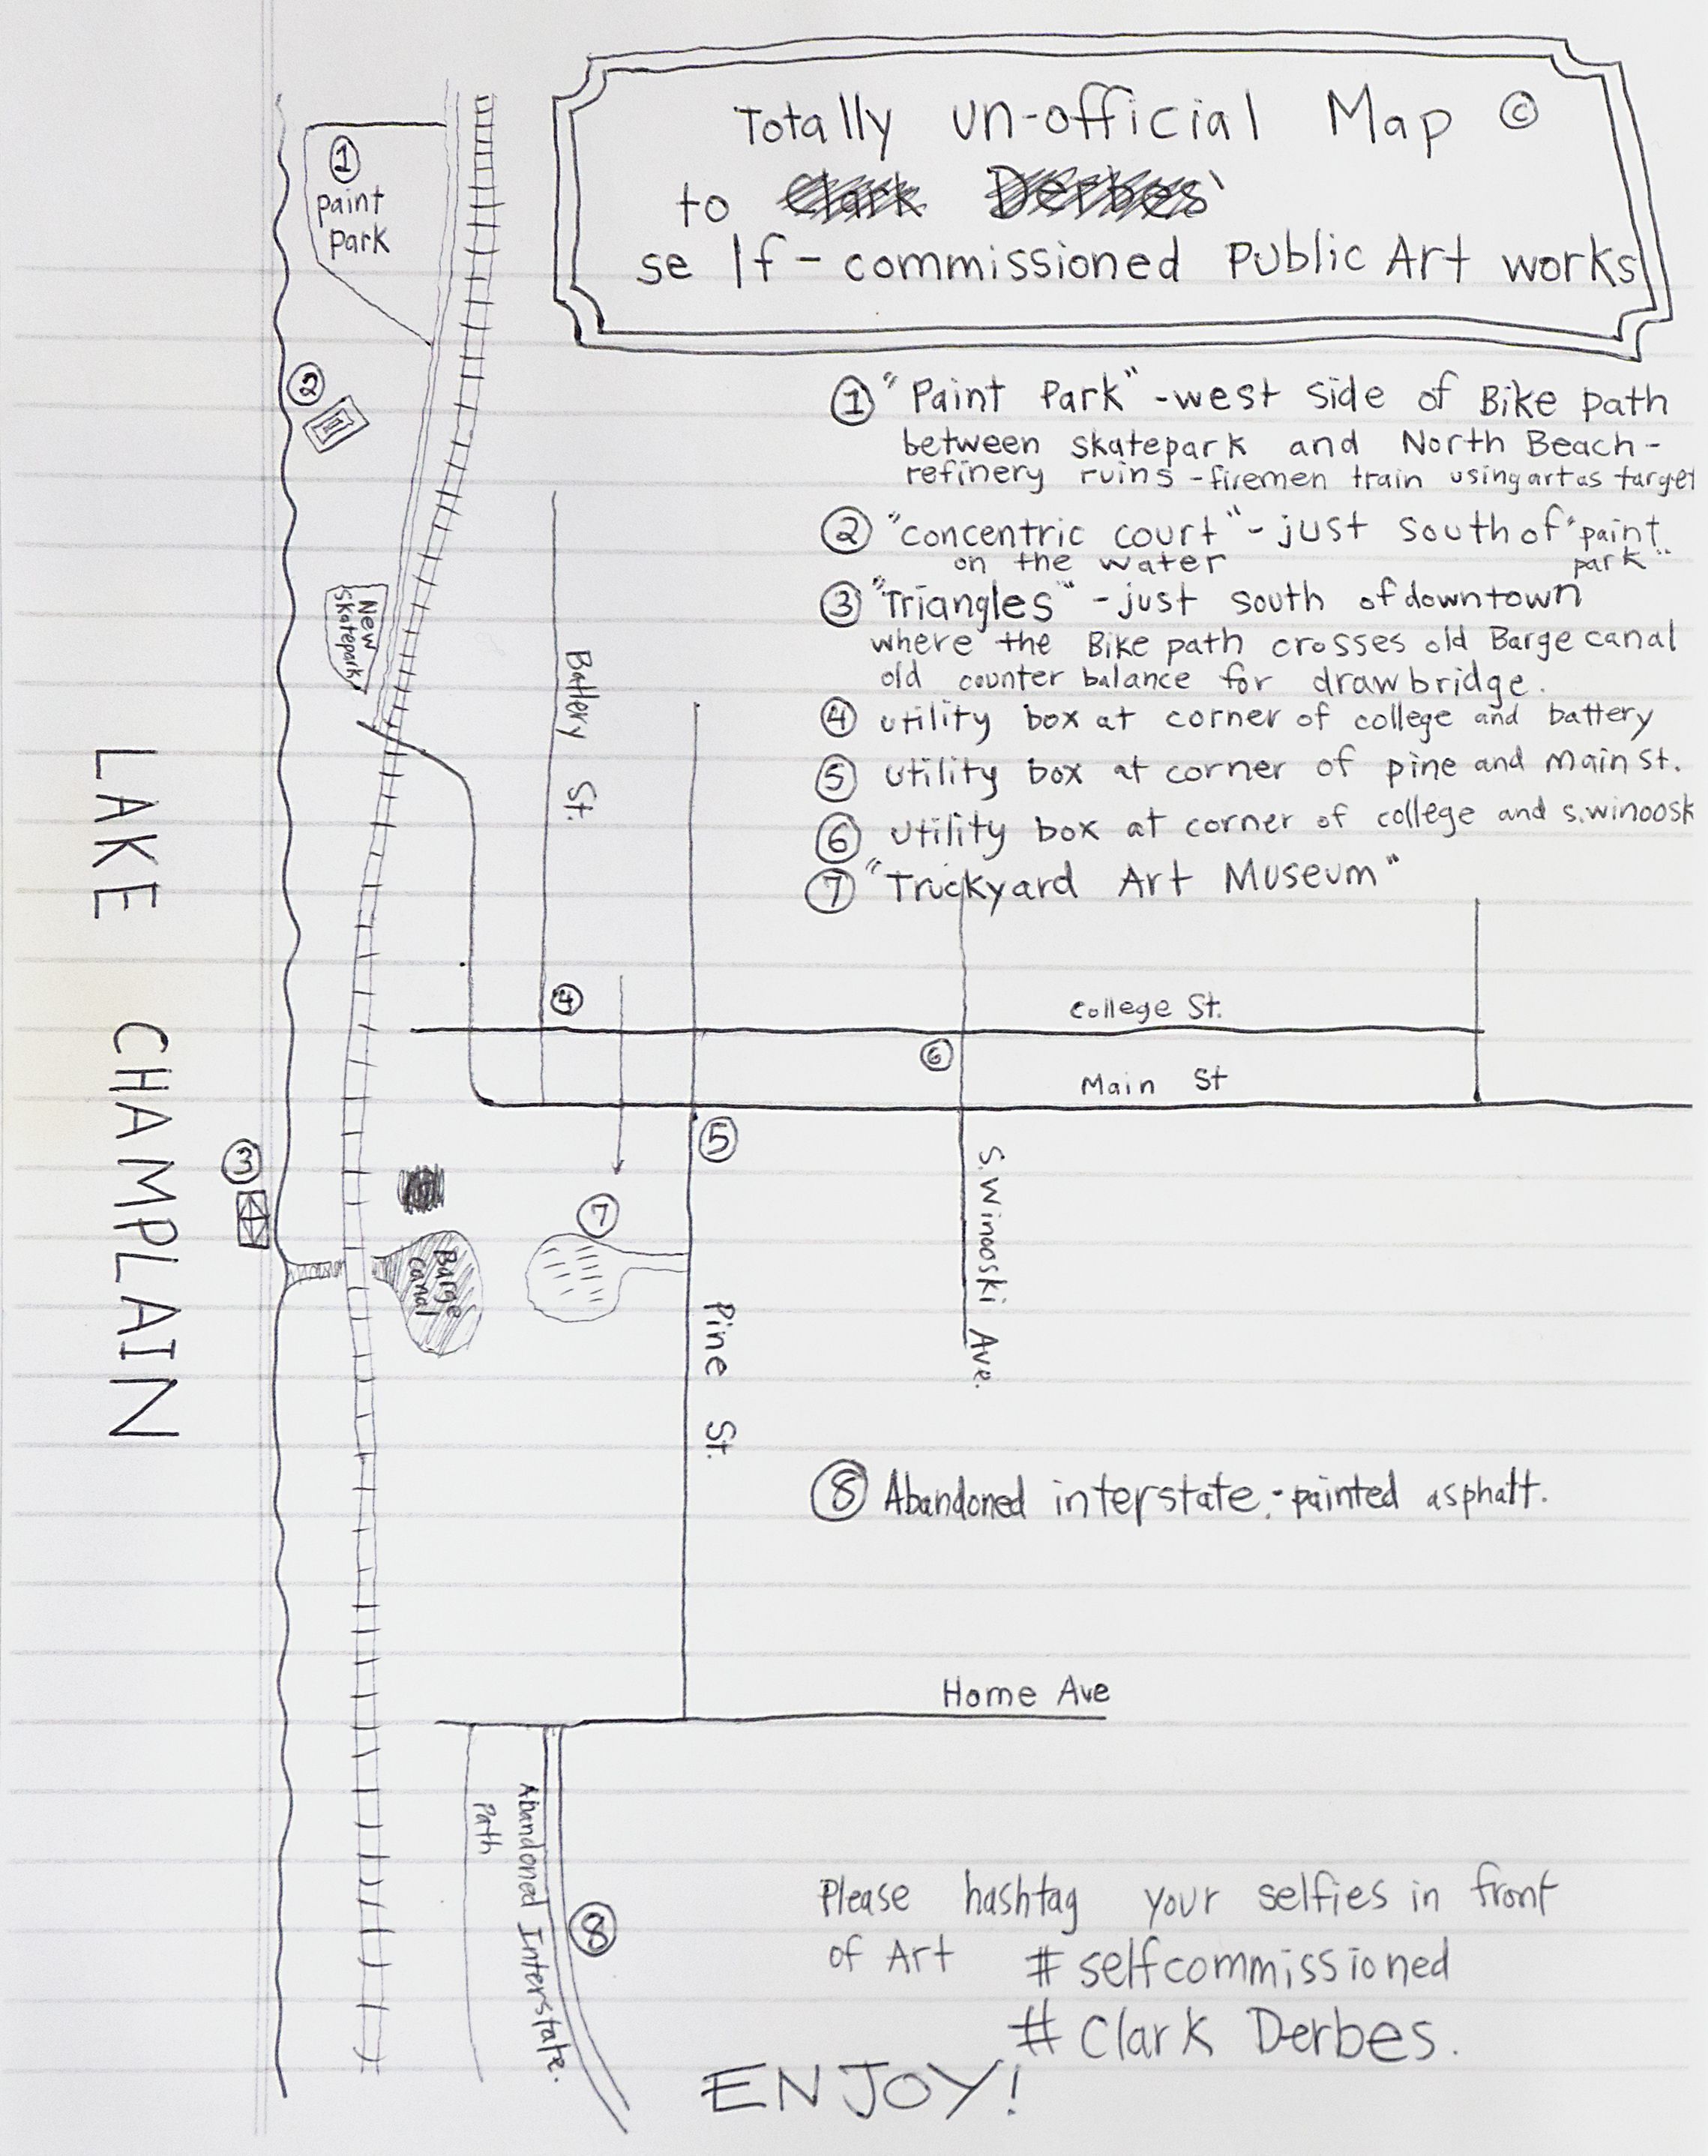 Totally un-official Map ©
to Clark Derbes'
self-commissioned Public Art works
① "Paint Park" - west side of Bike path
between skatepark and North Beach -
refinery ruins - firemen train using art as target
② "concentric court" - just south of "paint
on the water park"
③ "Triangles" - just south of downtown
where the Bike path crosses old Barge canal
old counter balance for drawbridge.
④ utility box at corner of college and battery
⑤ utility box at corner of pine and main st.
⑥ utility box at corner of college and s.winoosk
⑦ "Truckyard Art Museum"
①
paint
park
②
New
skatepark
Battery St.
LAKE CHAMPLAIN
④
College St.
⑥
Main St
⑤
③
⑦
Barge
canal
S. Winooski Ave.
Pine St.
⑧ Abandoned interstate. - painted asphalt.
Home Ave
Path
Abandoned Interstate.
⑧
Please hashtag your selfies in front
of Art # selfcommissioned
# Clark Derbes.
ENJOY!